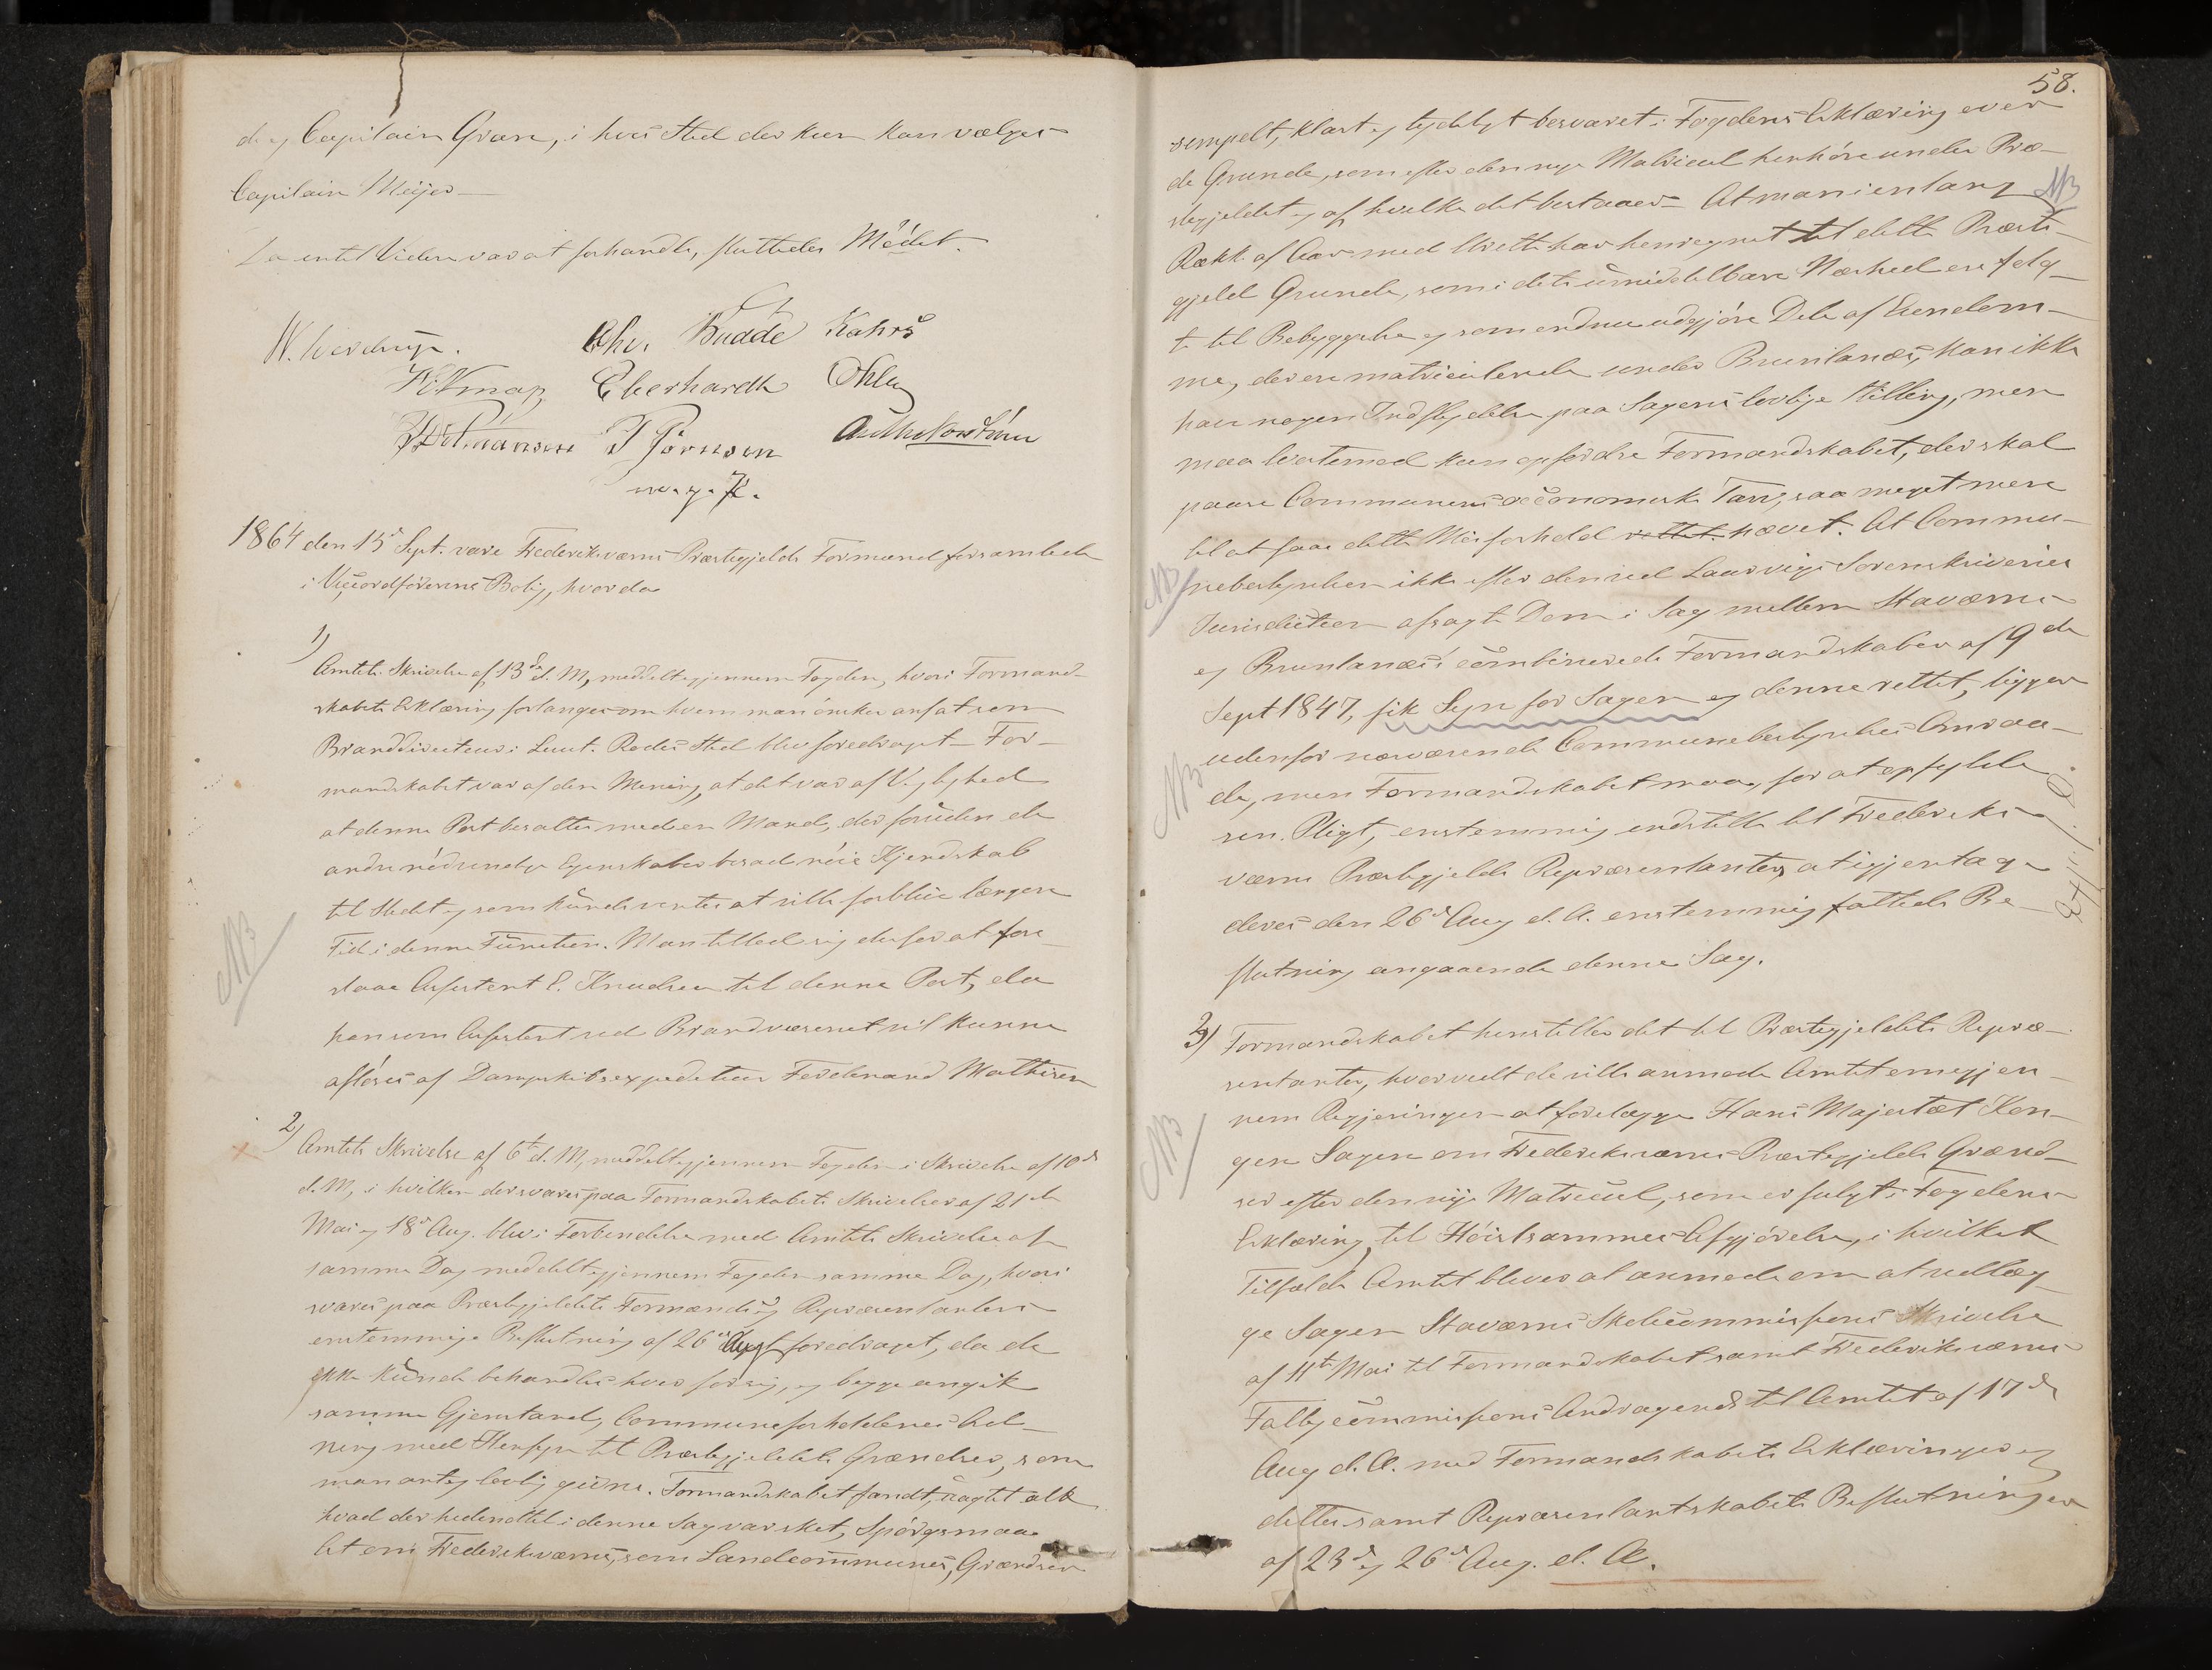 d. og Capitain Gran, i hvis Sted der kun kan vælges
Capitain Meijer
Da intet Videre var at forhandle, sluttedes Mödet.
Chr. Budde Kahrs
Eberhardh
1864 den 15d Sept. vare Frederiksværns Præstegjelds Formænd forsamlede
i Viceordförerens Bolig, hvor da
1)
Amtets Skrivelse af 13de d. M, meddelt gjennem Fogden, hvori Formand-
skabets Erklæring forlanges om hvem man önsker ansat som
Branddirecteur i Lieut. Rodes Sted blev foredraget – For-
mandskabet var af den Mening, at det var af Vigtighed
at denne Post besattes med en Mand, der foruden de
andre nödvendige Egenskaber besad nöie Kjendskab
til Stedet og som kunde ventes at ville forblive længere
Tid i denne Function. Man tillod sig derfor at fore
slaae Assistent E. Knudsen til denne Post, da
han som Assistent ved Brandvæsenet vil kunne
aflöses af Dampskibsexpediteur Ferdinand Mathisen
NB
2)
Amtets Skrivelse af 6te d. M, meddelt gjennem Fogden i Skrivelse af 10d
d. M, i hvilken der svares paa Formandskabets Skrivelser af 21de
Mai og 18d Aug. blev i Forbindelse med Amtets Skrivelse af
samme Dag meddelt gjennem Fogden samme Dag, hvori
svares paa Præstegjeldets Formænds og Repræsentanters
enstemmige Beslutning af 26d Augt foredraget, da de
ikke kunde behandles hver for sig, og begge angik
samme Gjenstand, Communeforholdenes
ning med Hensyn til Præstegjeldets Grændser, som
man antog lovlig givne. Formandskabet fandt, uagtet alt
hvad der hidendtil i denne Sag var sket, Spörgsmaa
let om Frederiksværns, som Landcommunes, Grændser
58.
simpelt, klart og tydeligt besvaret i Fogdens Erklæring over
de Grunde, som efter den nye Matricul henhöre under Præ-
stegjeldet og af hvilke det bestaaer – At man i en lang
NB
Række af Aar med Urette har henregnet til dette Præste-
gjeld Grunde, som i dets umiddelbare Nærhed ere solg-
te til Bebyggelse og som endnu udgjöre Dele af Eiendom-
me, der ere matriculerede under Brunlanæs, kan ikke
have nogen Indflydelse paa Sagens lovlige Stilling, men
maa derimod kun opfordre Formandskabet, der skal
paasee Communens oeconomiske Tarv, saa meget mere
til at faae dette Misforhold rettet. hævet. At Commu-
nebestyrelsen ikke efter den ved Laurvigs Sorenskriveries
NB
Jurisdiction afsagte Dom i Sag mellem Staværns
og Brunlanæs's combinerede Formandskaber af 9de
Sept 1847, fik Syn for Sagen og denne rettet, ligger
udenfor nærværende Communebestyrelses Omraa-
NB
de, men Formandskabet maa, for at opfylde
sin Pligt, enstemmig indstille til Frederiks-
værns Præstegjelds Repræsentanter, at igjentage
deres den 26d Aug d. A. enstemmig fattede Be-
slutning angaaende denne Sag.
3) Formandskabet henstiller det til Præstegjeldets Repræ-
sentanter, hvorvidt de ville anmode Amtet om gjen-
nem Regjeringen at forelægge Hans Majestæt Kon-
gen Sagen om Frederiksværns Præstegjelds Grænd-
NB
ser efter den nye Matricul, som er fulgt i Fogdens
Erklæring, til Höistsammes Afgjörelse, i hvilket
Tilfælde Amtet bliver at anmode om at vedlæg-
ge Sagen Staværns Skolecommissions Skrivelse
af 11te Mai til Formandskabet samt Frederiksværns
Fattigcommissions Andragende til Amtet af 17de
Aug d. A. med Formandskabets Erklæringer og
dettes samt Repræsentantskabets Beslutninger
af 23d og 26d Aug. d. A.